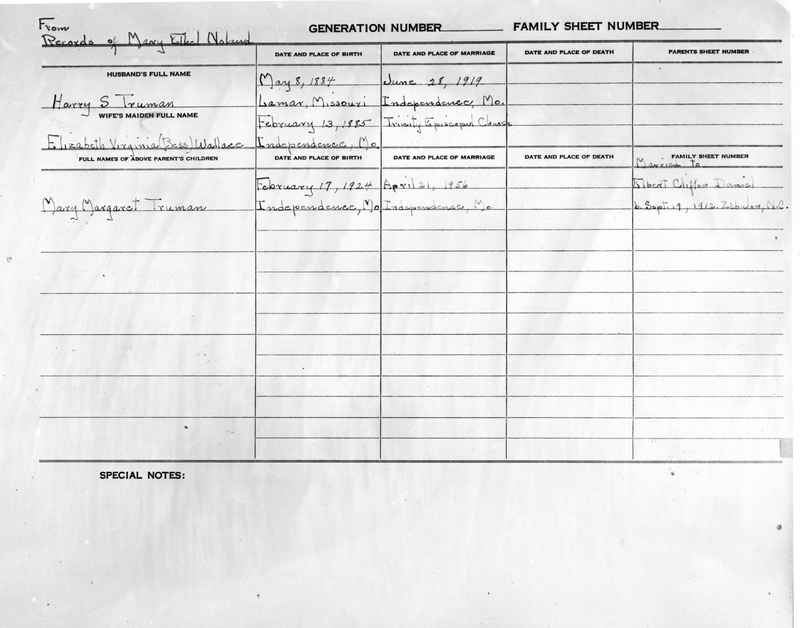 From
Records of Mary Ethel Noland
GENERATION NUMBER FAMILY SHEET NUMBER
DATE AND PLACE OF BIRTH DATE AND PLACE OF MARRIAGE DATE AND PLACE OF DEATH PARENTS SHEET NUMBER
HUSBAND'S FULL NAME
May 8, 1884 June 28, 1919
Harry S Truman Lamar, Missouri Independence, Mo.
WIFE'S MAIDEN FULL NAME
February 13, 1885 Trinity Episcopal Church
Elizabeth Virginia (Bess) Wallace Independence, Mo.
FULL NAMES OF ABOVE PARENT'S CHILDREN DATE AND PLACE OF BIRTH DATE AND PLACE OF MARRIAGE DATE AND PLACE OF DEATH FAMILY SHEET NUMBER
Married to
February 17, 1924 April 21, 1956 Elbert Clifton Daniel
Mary Margaret Truman Independence, Mo Independence, Mo b. Sept. 19, 1912. Zebulon, N.C.
SPECIAL NOTES: